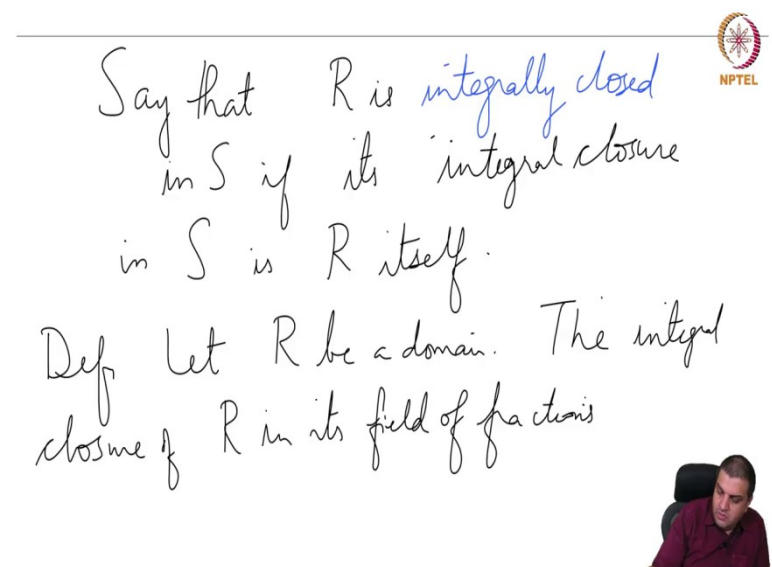 NPTEL
Say that R is integrally closed
in S if its integral closure
in S is R itself.
Def Let R be a domain. The integral
closure of R in its field of fractions